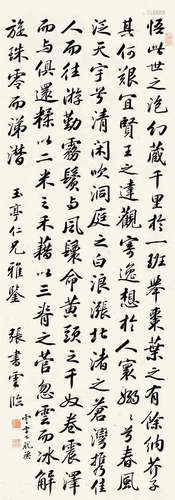 悟此世之泡幻藏千里於一班舉棗葉之有餘納芥子
其何艱宜賢王之達觀寄逸想於人寰嫋々兮春風
泛天宇兮清閒吹洞庭之白浪漲北渚之蒼灣攜佳
人而往游勤霧鬢与風鬟命黃頭之千奴卷震澤
而与俱還糅以二米之禾藉以三脊之菅忽雲而冰解
旋珠零而涕潸
玉亭仁兄雅鑒
張書雲臨